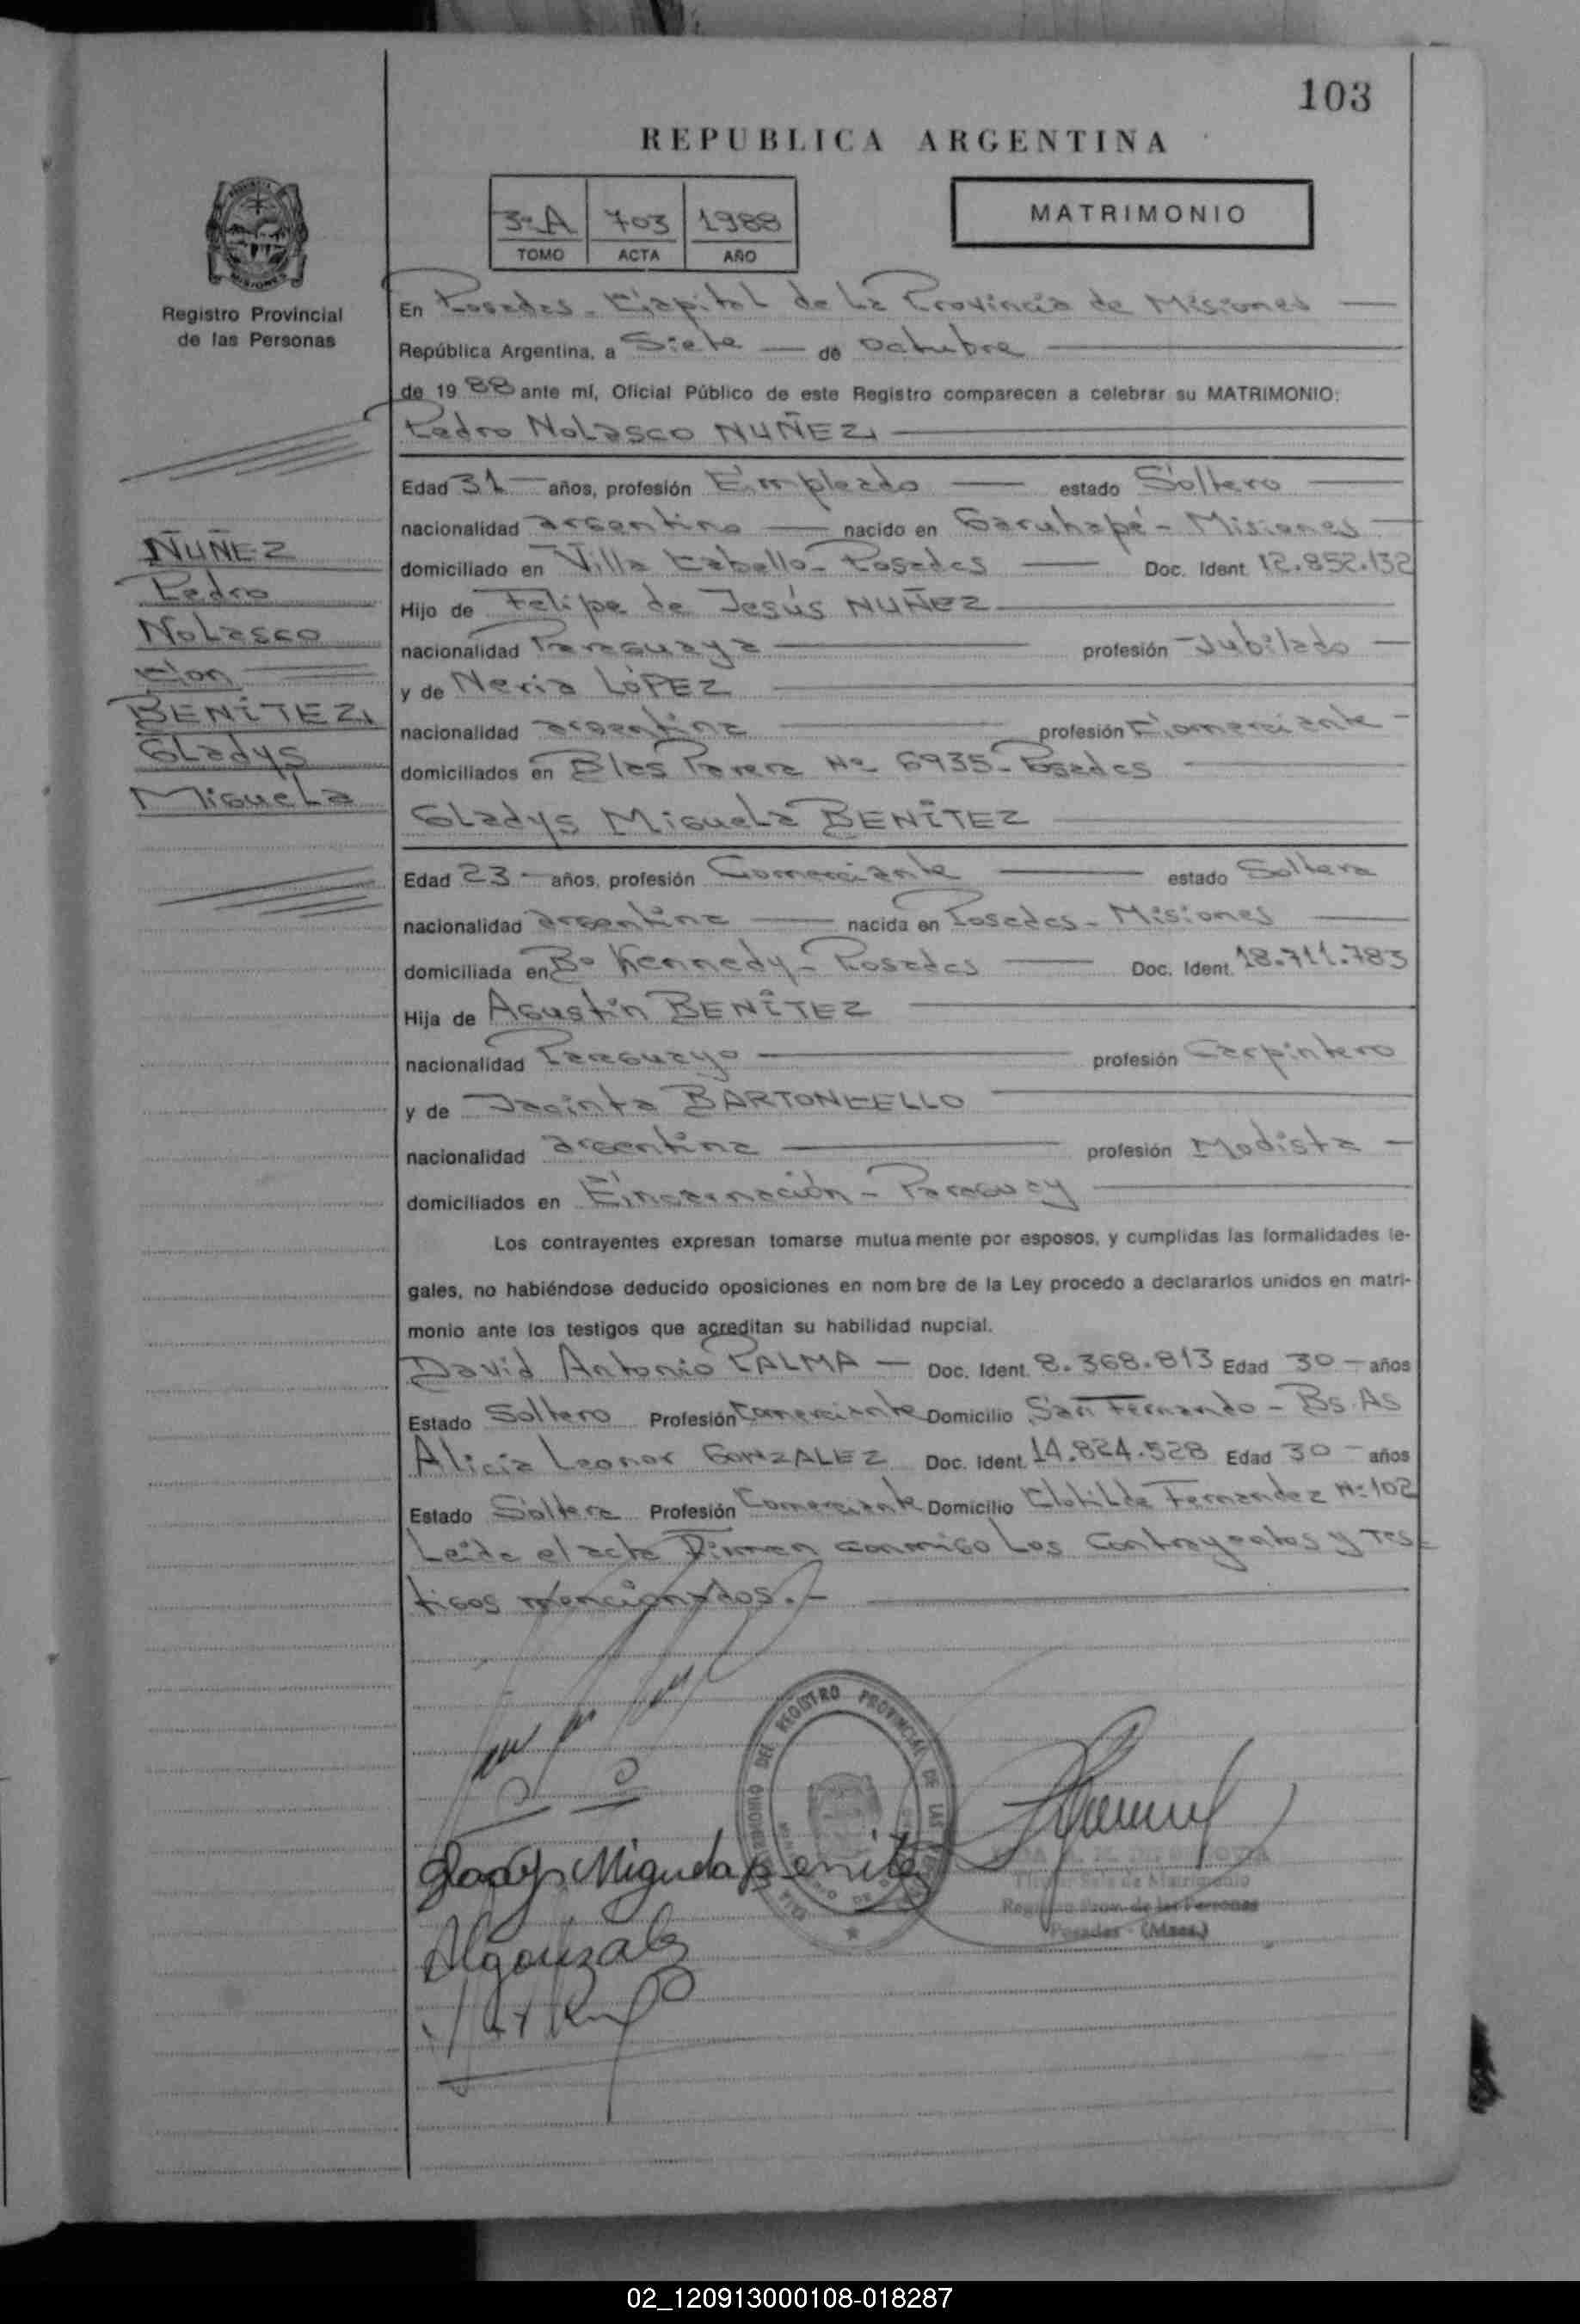 103
REPUBLICA ARGENTINA
3º A 703 1988
TOMO ACTA AÑO
MATRIMONIO
Registro Provincial
de las Personas
En Posadas - Capital de La Provincia de Misiones
República Argentina, a Siete de Octubre
de 1988 ante mí, Oficial Público de este Registro comparecen a celebrar su MATRIMONIO:
Pedro Nolasco NUÑEZ
Edad 31 años, profesión Empleado estado Soltero
nacionalidad argentino nacido en Garuhapé - Misiones
domiciliado en Villa Cabello - Posadas Doc. Ident. 12.852.132
Hijo de Felipe de Jesús NUÑEZ
nacionalidad Paraguaya profesión Jubilado
y de Neria LóPEZ
nacionalidad argentina profesión Comerciante
domiciliados en Blas Parera Nº 6935 - Posadas
Gladys Miguela BENÍTEZ
Edad 23 años, profesión Comerciante estado Soltera
nacionalidad argentina nacida en Posadas - Misiones
domiciliada en Bº Kennedy - Posadas Doc. Ident. 18.711.783
Hija de Agustín BENÍTEZ
nacionalidad Paraguayo profesión Carpintero
y de Jacinta BARTONCELLO
nacionalidad argentina profesión Modista
domiciliados en Encarnación - Paraguay
Los contrayentes expresan tomarse mutuamente por esposos, y cumplidas las formalidades le-
gales, no habiéndose deducido oposiciones en nom bre de la Ley procedo a declararlos unidos en matri-
monio ante los testigos que acreditan su habilidad nupcial.
David Antonio PALMA Doc. Ident. 8.368.813 Edad 30 años
Estado Soltero Profesión Comerciante Domicilio San Fernando - Bs. As
Alicia Leonor GONZALEZ Doc. Ident. 14.824.528 Edad 30 años
Estado Soltera Profesión Comerciante Domicilio Clotilde Fernandez Nº 102
Leida el acta Firman conmigo Los Contrayentes y Tes-
tigos mencionados.-
NUÑEZ
Pedro
Nolasco
con
BENÍTEZ,
Gladys
Miguela
DEL REGISTRO PROVINCIAL DE LAS
Gladys Miguela Benitez
ALgonzalez
Titular Sala de Matrimonio
Registro Prov. de las Personas
Posadas - (Mnes.)
02_120913000108-018287